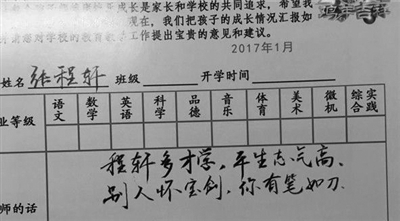 成长是家长和学校的共同追求,希望我
现在,我们把孩子的成长情况汇报如
对学校的教育教学工作提出宝贵的意见和建议。
2017年1月
姓名 张程轩 班级 开学时间
业等级 语文 数学 英语 科学 品德 音乐 体育 美术 微机 综合实践
师的话 程轩多才学,平生志气高、
别人怀宝剑,你有笔如刀.